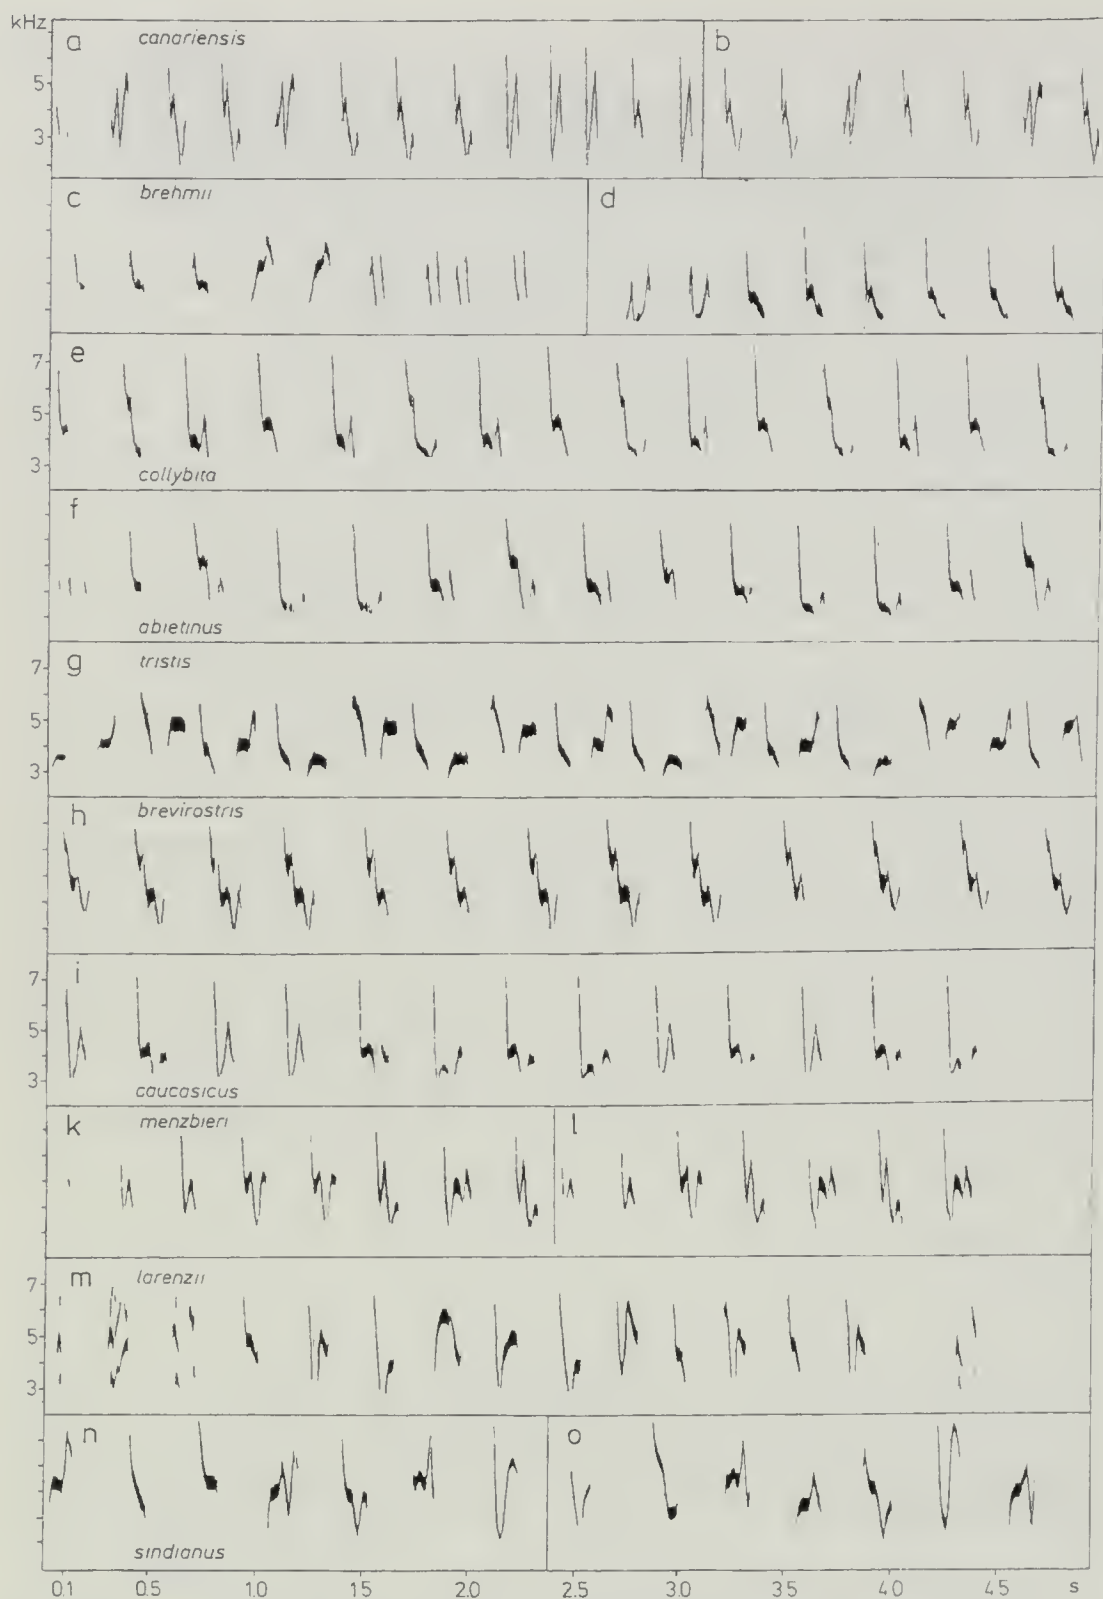 kHz
a canariensis b
5
3
c brehmii d
e
7
5
3
collybita
f
abietinus
g tristis
7
5
3
h brevirostris
i
7
5
3
caucasicus
k menzbieri l
m lorenzii
7
5
3
n o
sindianus
0.1 0.5 1.0 1.5 2.0 2.5 3.0 3.5 4.0 4.5 s